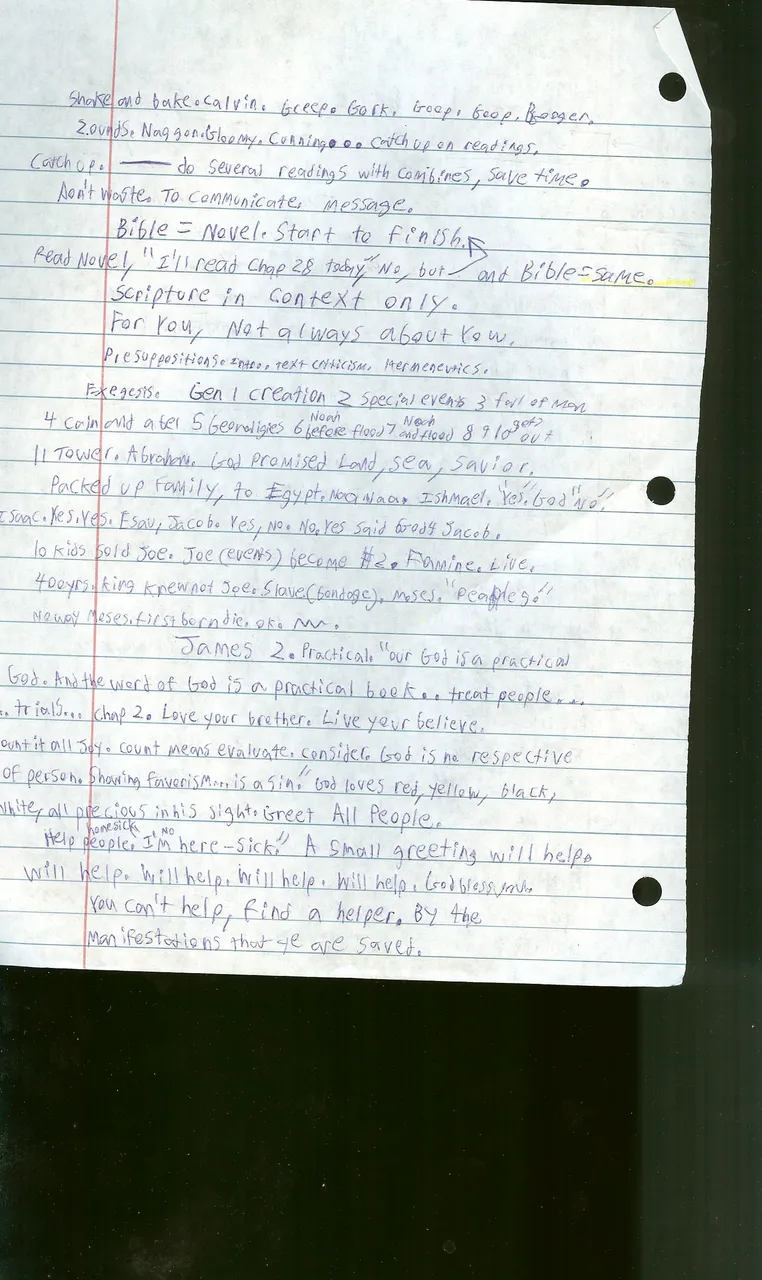 Shake and bake. Calvin. Greep. Gork. Goop. Goop. Booger.
Zounds. Naggon. Gloomy. Cunning... catch up on readings.
Catch up. — do several readings with combines, save time.
Don't waste. To communicate, message.
Bible = Novel. Start to finish.
Read Novel, "I'll read Chap 28 today" No, but and Bible = same.
Scripture in context only.
For You, Not always about You.
Presuppositions. Intro. text criticism. Hermeneutics.
Exegesis. Gen 1 creation 2 special events 3 fall of man
4 Cain and Abel 5 Geonoligies 6 Noah before flood 7 Noah and flood 8 9 10 gets out
11 Tower. Abraham. God promised Land, sea, savior.
Packed up family, to Egypt. Naa Naa. Ishmael. "Yes." God "No"
Isaac. Yes. Yes. Esau, Jacob. Yes, No. No, Yes said God 4 Jacob.
10 kids sold Joe. Joe (events) become #2. Famine. Live.
400 yrs. King knew not Joe. Slave (bondage). Moses. "People go"
No way Moses. first born die. ok.
James 2. Practical. "our God is a practical
God. And the word of God is a practical book.. treat people...
.. trials... Chap 2. Love your brother. Live your believe.
ount it all Joy. count means evaluate. consider. God is no respective
of person. Showing favorism... is a sin." God loves red, yellow, black,
white, all precious in his sight. Greet All People.
Help homesick people. I'm NO here - sick." A small greeting will help.
will help. Will help. Will help. Will help. God bless
You can't help, find a helper. By the
manifestations that ye are saved.